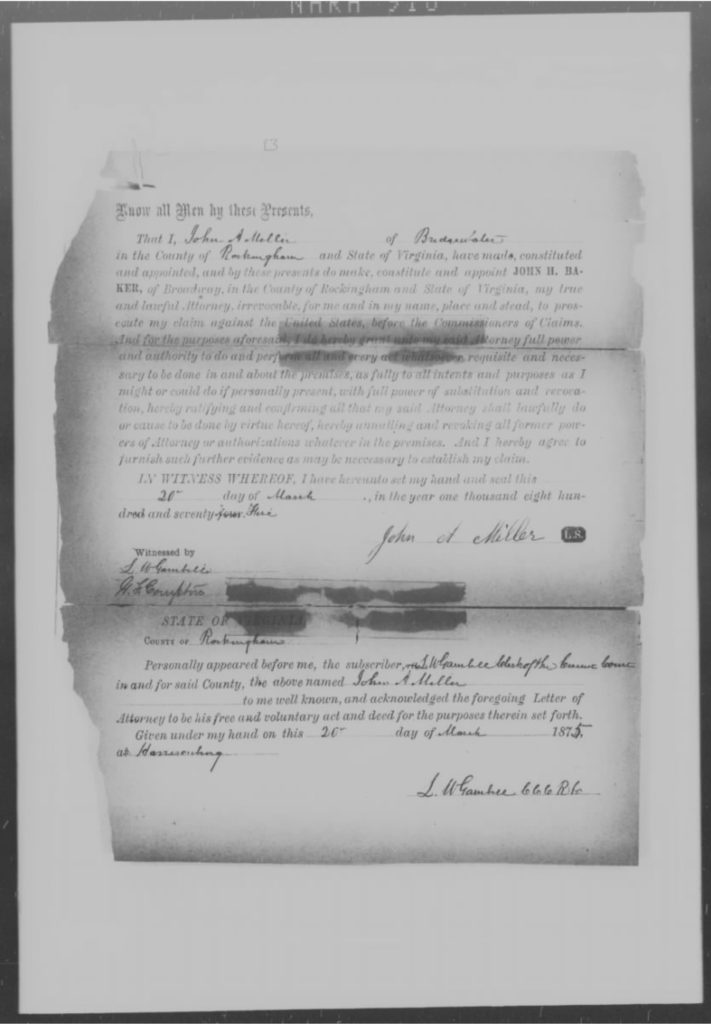 Know all Men by these Presents,
That I, John A Miller of Bridgewater
in the County of Rockingham and State of Virginia, have made, constituted
and appointed, and by these presents do make, constitute and appoint JOHN H. BA-
KER, of Broadway, in the County of Rockingham and State of Virginia, my true
and lawful Attorney, irrevocable, for me and in my name, place and stead, to pros-
ecute my claim against the United States, before the Commissioners of Claims.
And for the purposes aforesaid, I do hereby grant unto my said Attorney full power
and authority to do and perform all and every act whatsoever, requisite and neces-
sary to be done in and about the premises, as fully to all intents and purposes as I
might or could do if personally present, with full power of substitution and revoca-
tion, hereby ratifying and confirming all that my said Attorney shall lawfully do
or cause to be done by virtue hereof, hereby annulling and revoking all former pow-
ers of Attorney or authorizations whatever in the premises. And I hereby agree to
furnish such further evidence as may be neccessary to establish my claim.
IN WITNESS WHEREOF, I have hereunto set my hand and seal this
20" day of March, in the year one thousand eight hun-
dred and seventy-four. five
John A Miller L.S.
Witnessed by
L W Gambill
STATE OF VIRGINIA
COUNTY OF Rockingham
Personally appeared before me, the subscriber, L W Gambill Clerk of the
in and for said County, the above named John A Miller
to me well known, and acknowledged the foregoing Letter of
Attorney to be his free and voluntary act and deed for the purposes therein set forth.
Given under my hand on this 20" day of March 1875.
at Harrisonburg
L. W Gambill C C C R C